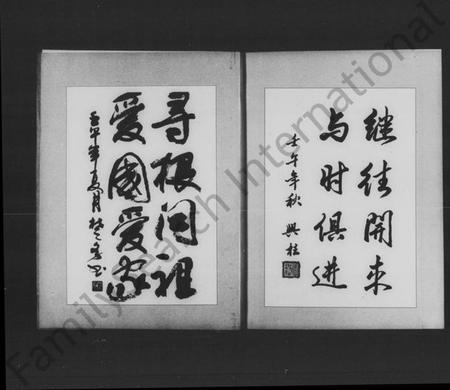 继往開来
与时俱进
壬午年秋 興柱
寻根问祖
爱國爱家
壬午年夏月
FamilySearch International